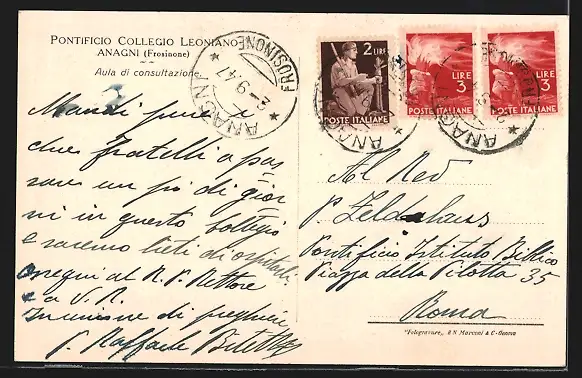 PONTIFICIO COLLEGIO LEONIANO
ANAGNI (Frosinone)
Aula di consultazione
ANAGNI
2-9.47
FROSINONE
2 LIRE
POSTE ITALIANE
LIRE
3
POSTE ITALIANE
LIRE
3
POSTE ITALIANE
Mandi pure i
due fratelli a pas
sare un pò di gior
ni in questo Collegio
e saremo lieti di ospitarli
Ossequi al R. P. Rettore
e a V. R.
In unione di preghiere
P. Raffaele
Al Rev
P. Zeldahaus
Pontificio Istituto Biblico
Piazza della Pilotta 35
Roma
"Fotogravure„